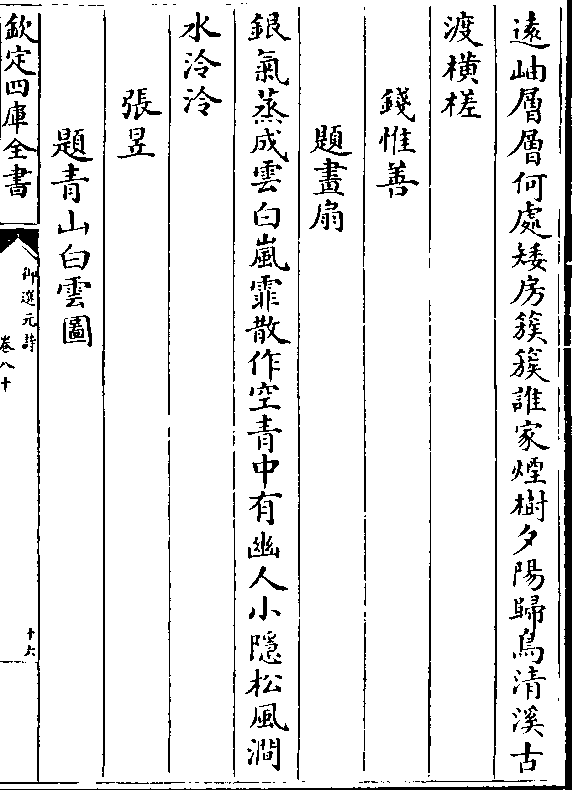 遠岫層層何處矮房簇簇誰家煙樹夕陽歸鳥清溪古
渡橫槎
錢惟善
題畫扇
銀氣蒸成雲白嵐霏散作空青中有幽人小隱松風澗
水泠泠
張昱
題青山白雲圖
欽定四庫全書
御選元詩
卷八十
十六